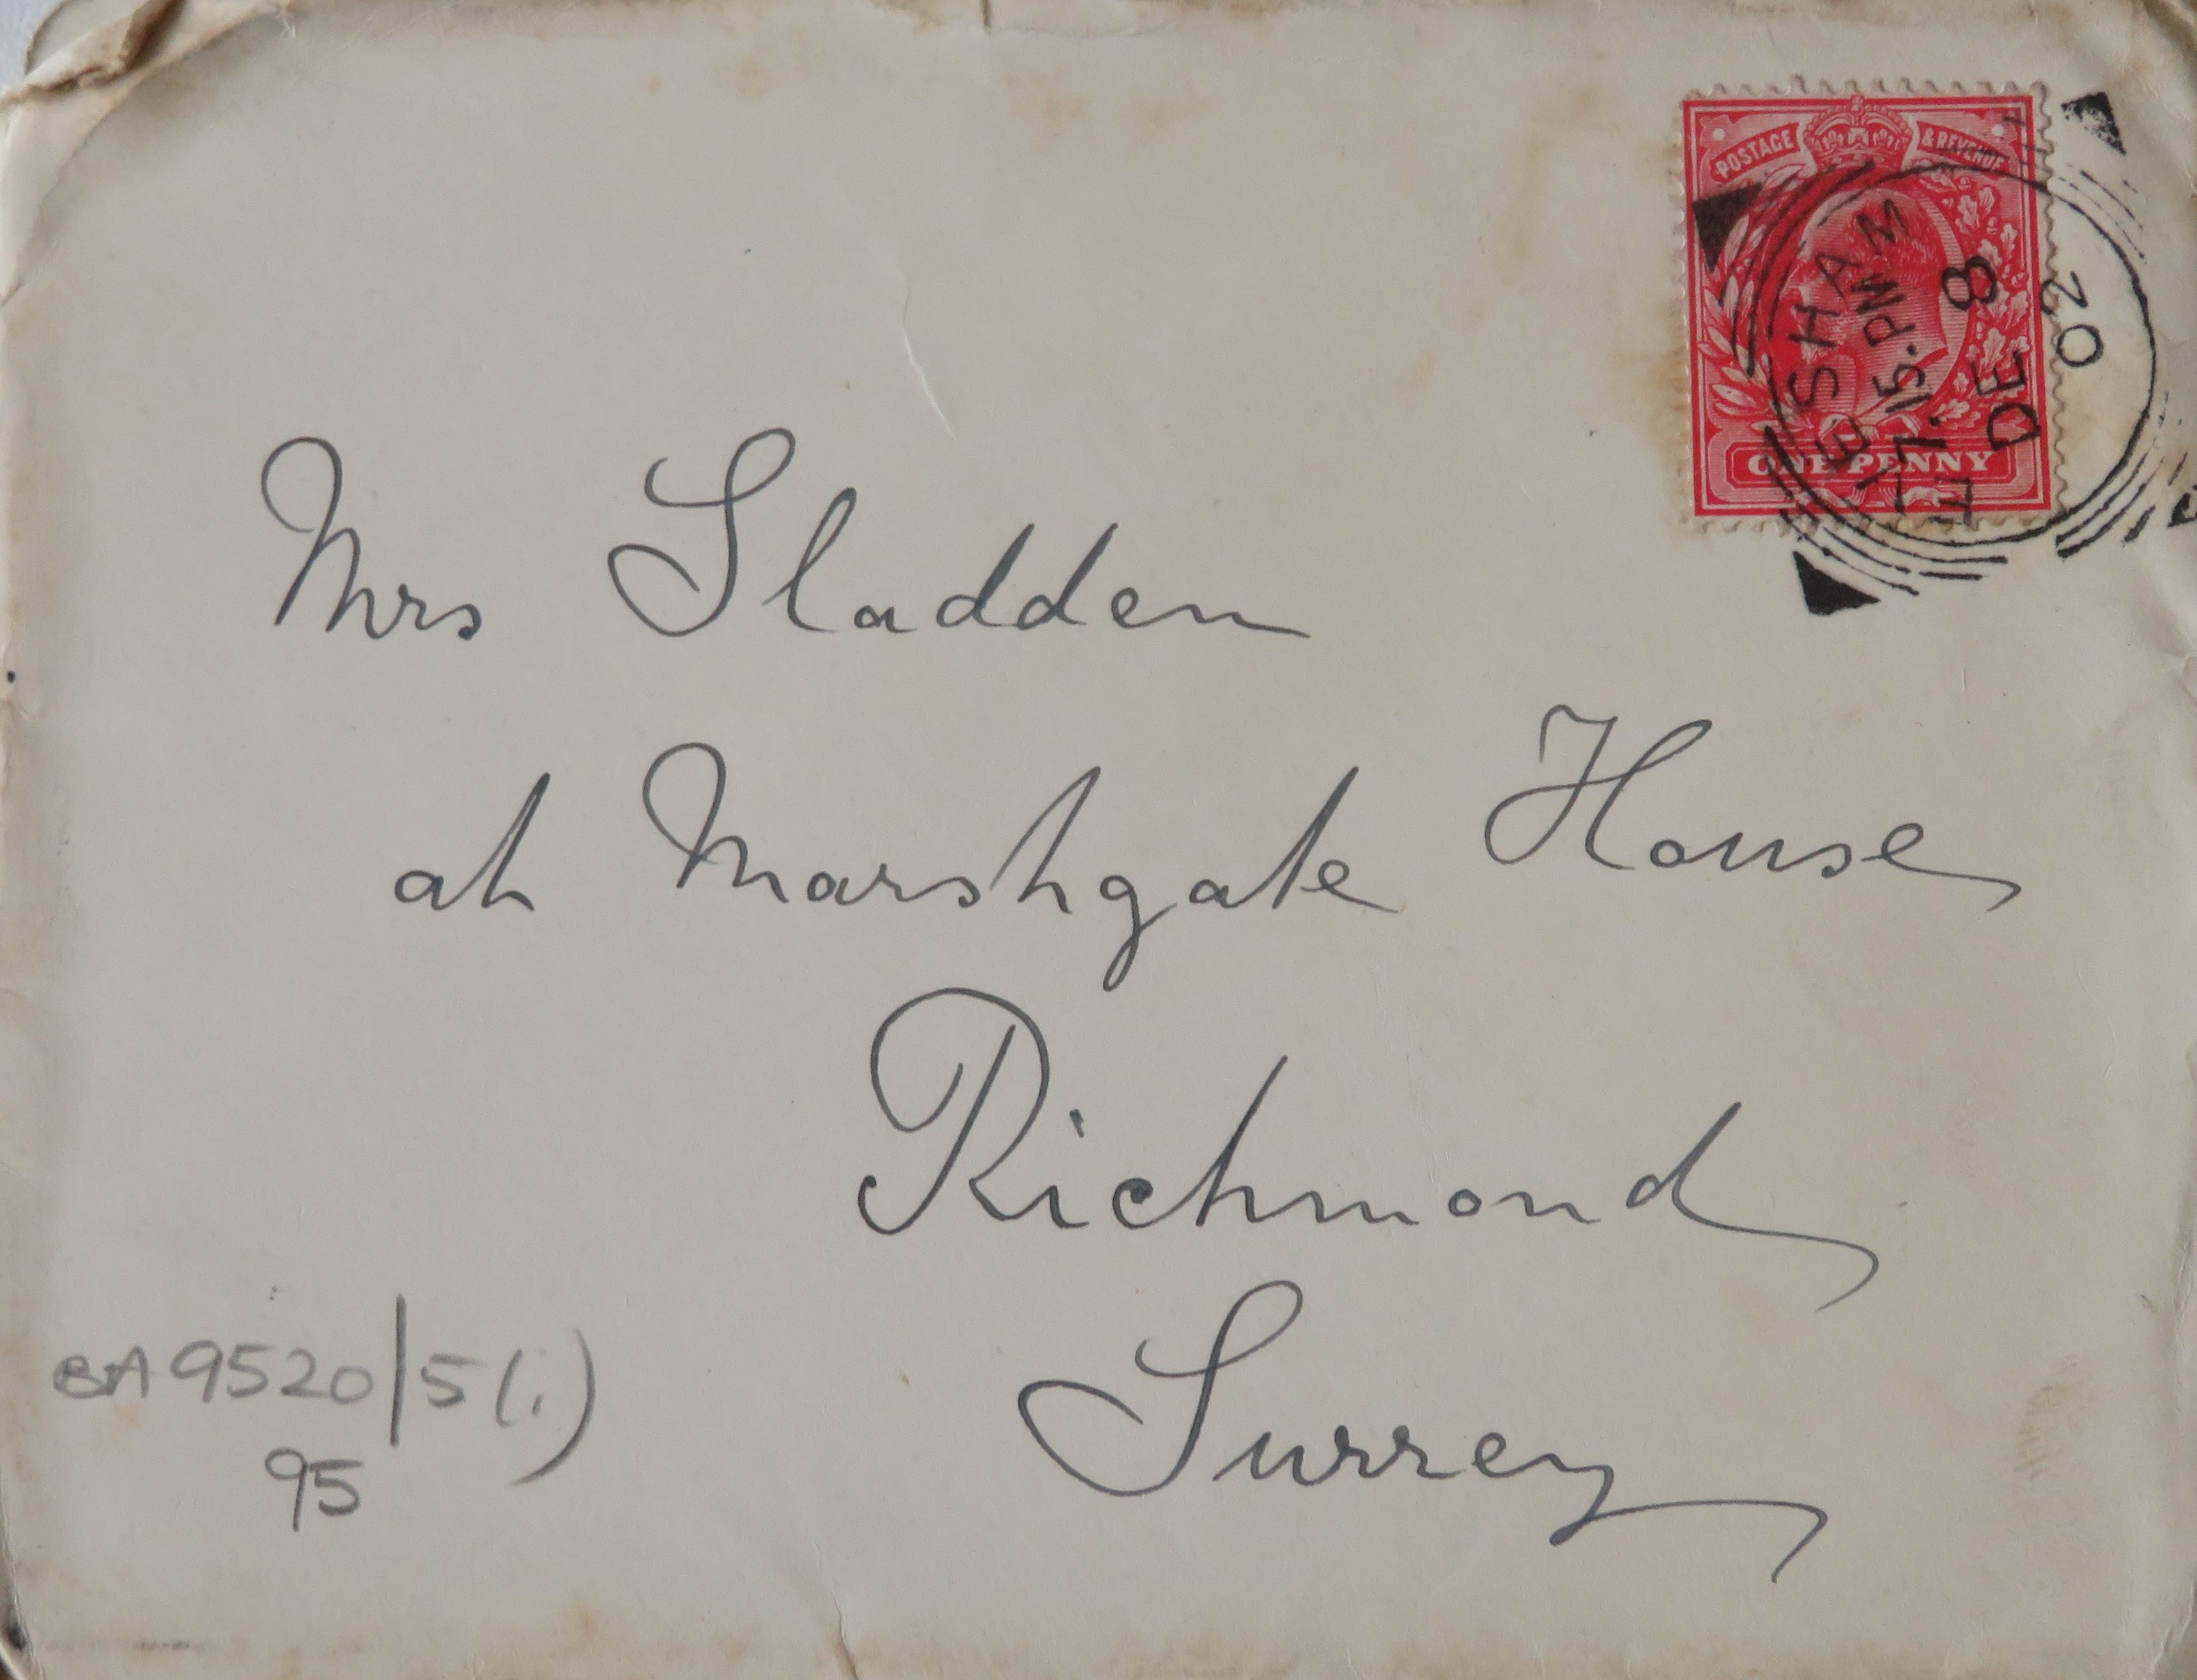 POSTAGE & REVENUE
ONE PENNY
EVESHAM
7.15.PM
DE 8
02
Mrs Sladden
at Marshgate House
Richmond
Surrey
BA 9520/5(i)
95